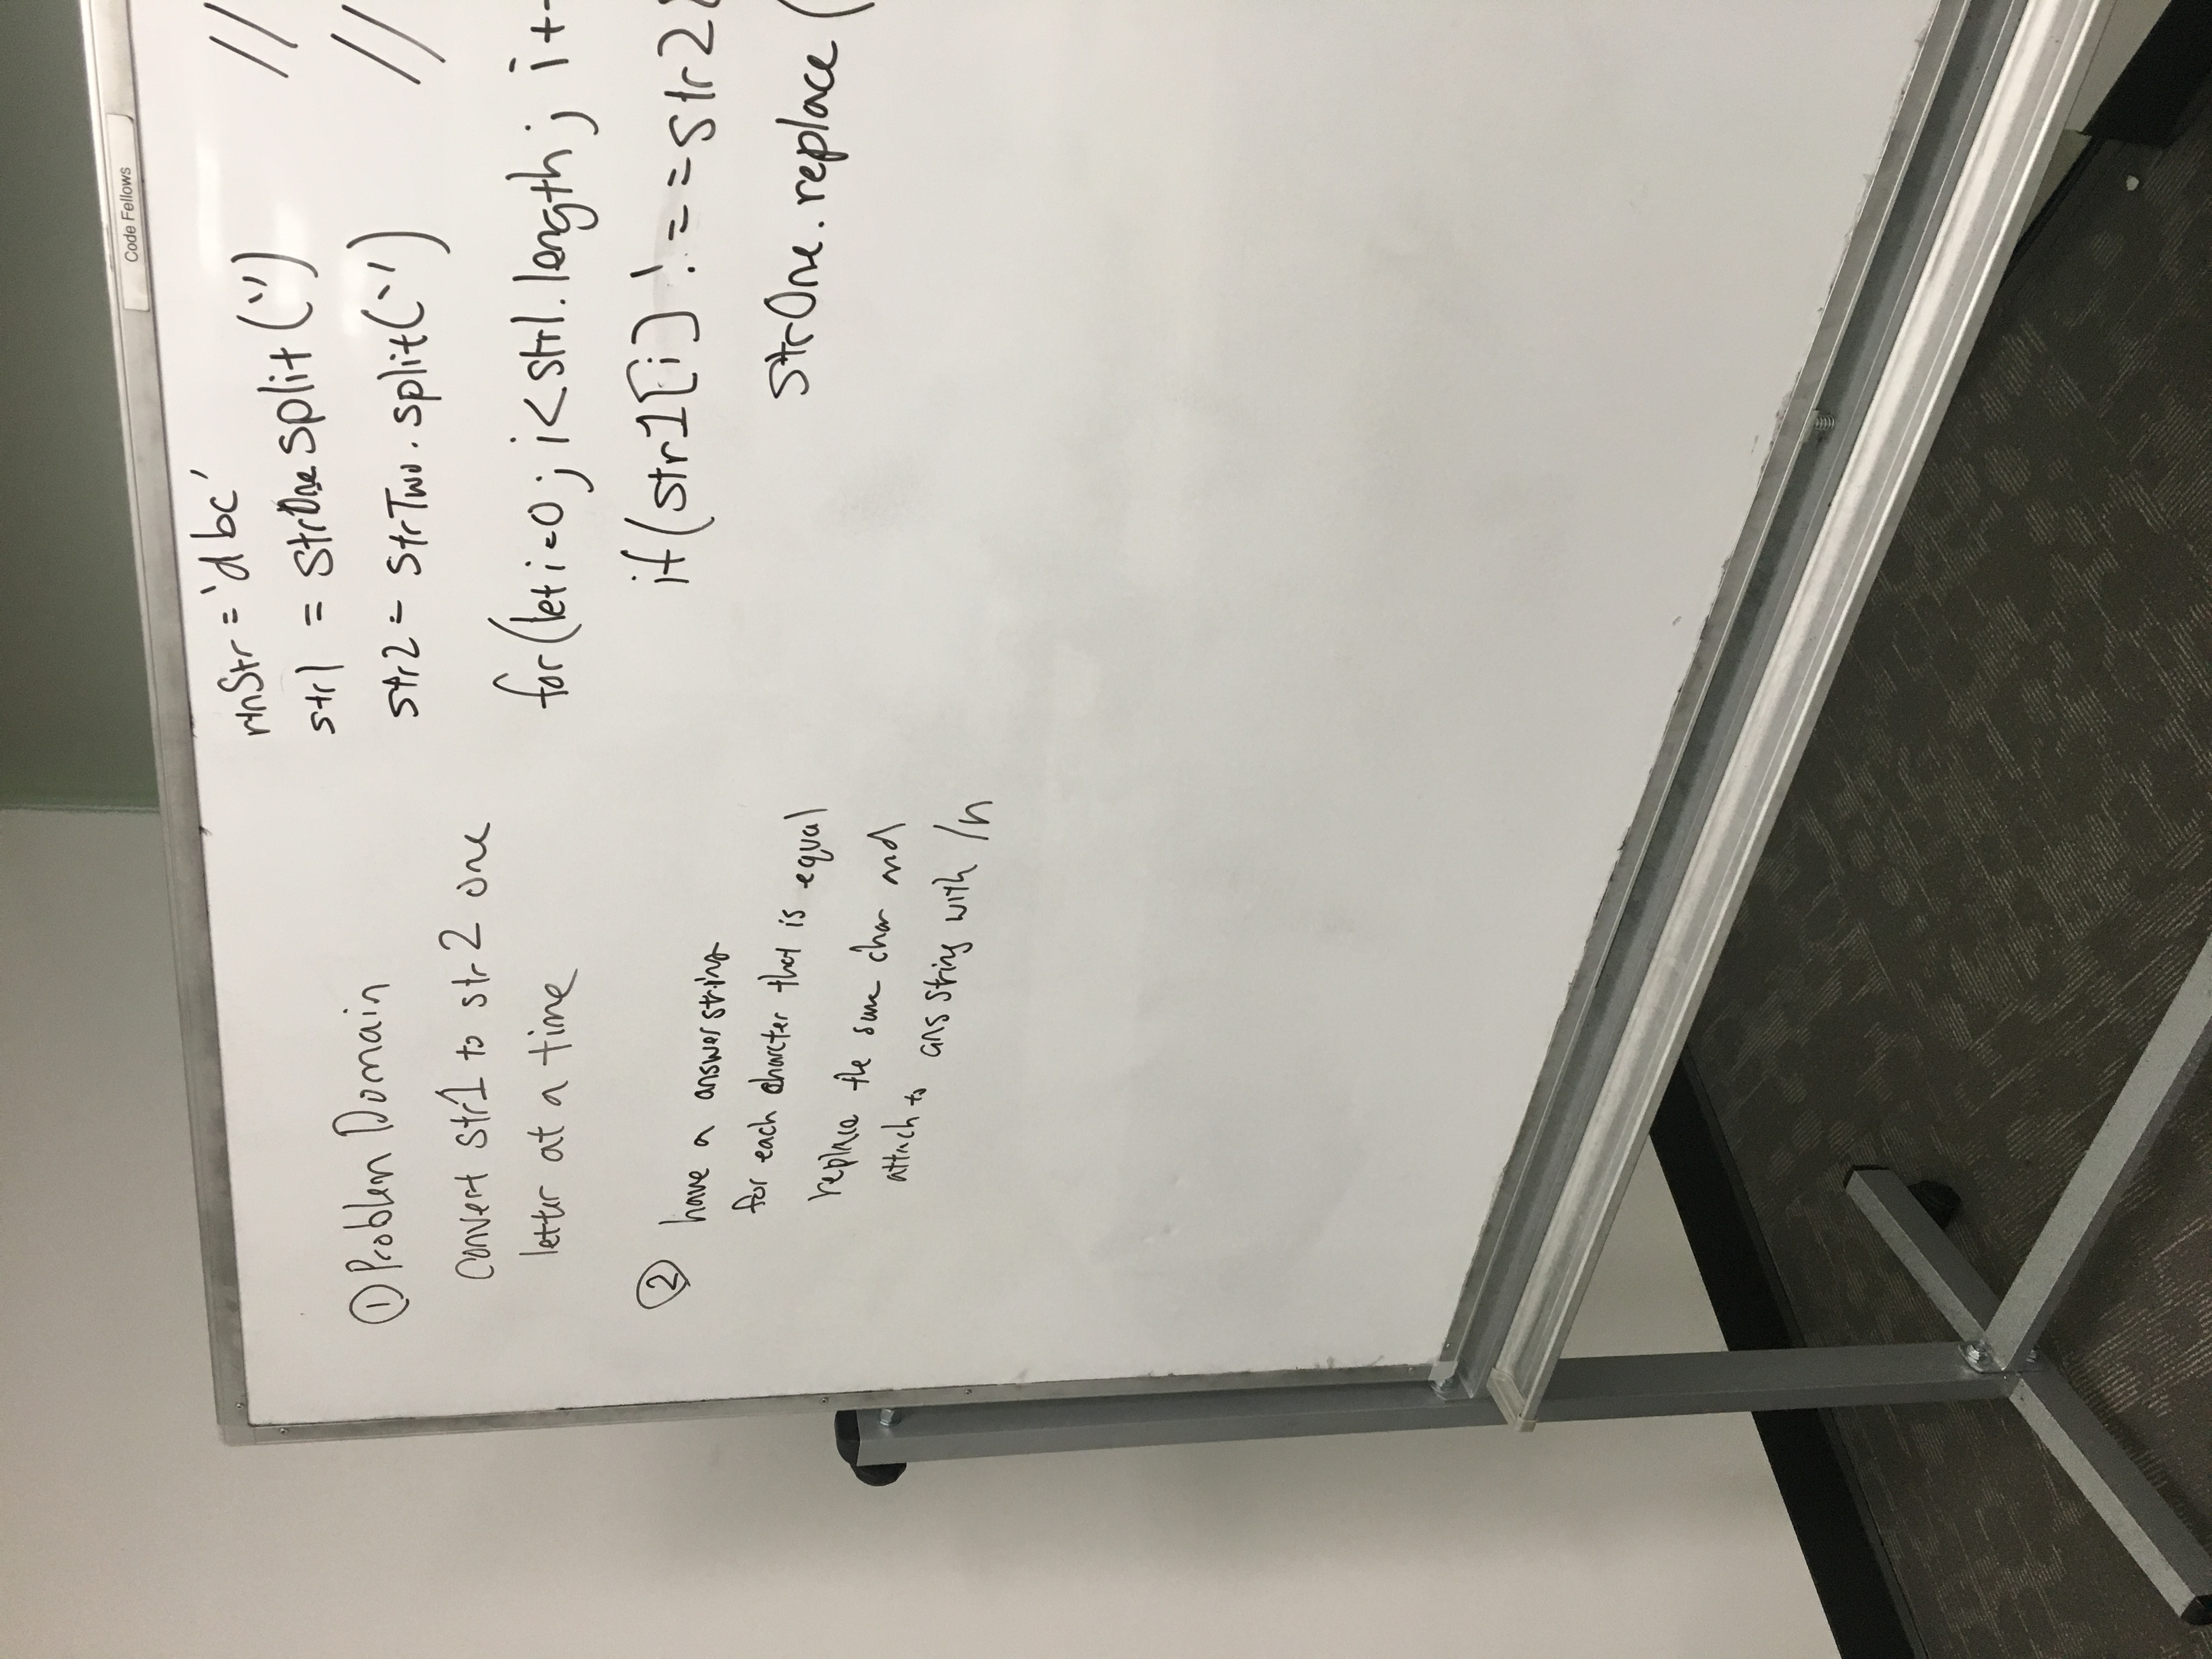 Code Fellows
① Problem Domain
Convert str1 to str2 one
letter at a time
②
have a answerstring
for each charcter that is equal
replace the same char and
attach to ans string with /n
rtnStr = 'dbc'
str1 = strOne split('') //
str2 = strTwo.split('') //
for(let i=0; i<str1.length; i+
if(str1[i] !==str2
strOne.replace(